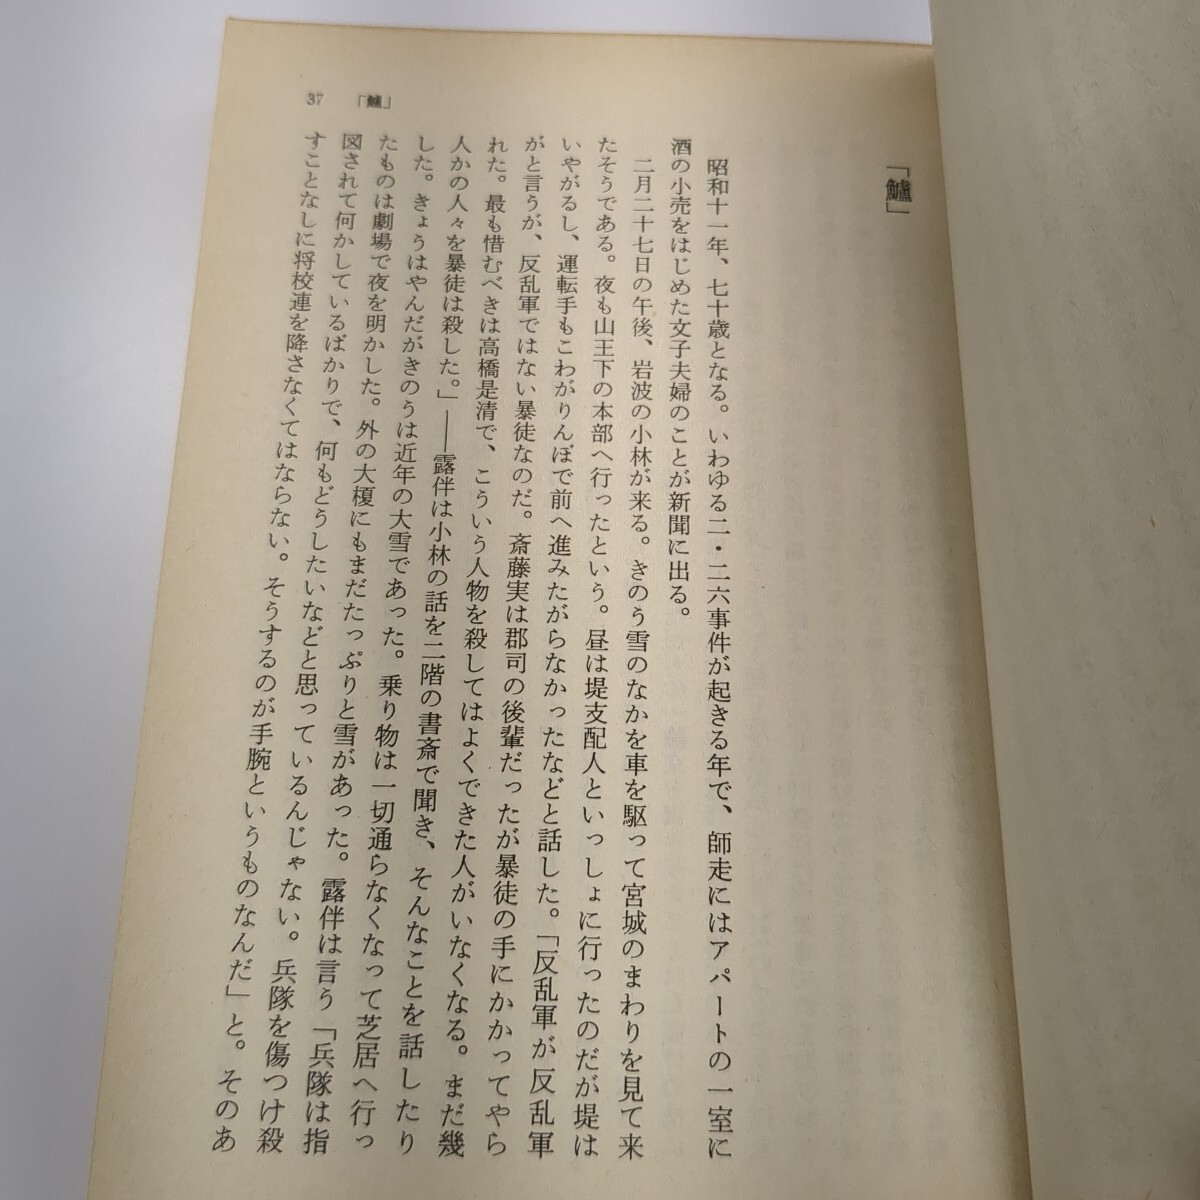 「鱸」
昭和十一年、七十歳となる。いわゆる二・二六事件が起きる年で、師走にはアパートの一室に
酒の小売をはじめた文子夫婦のことが新聞に出る。
二月二十七日の午後、岩波の小林が来る。きのう雪のなかを車を駆って宮城のまわりを見て来
たそうである。夜も山王下の本部へ行ったという。昼は堤支配人といっしょに行ったのだが堤は
いやがるし、運転手もこわがりんぼで前へ進みたがらなかったなどと話した。「反乱軍が反乱軍
がと言うが、反乱軍ではない暴徒なのだ。斎藤実は郡司の後輩だったが暴徒の手にかかってやら
れた。最も惜むべきは高橋是清で、こういう人物を殺してはよくできた人がいなくなる。まだ幾
人かの人々を暴徒は殺した。」――露伴は小林の話を二階の書斎で聞き、そんなことを話したり
した。きょうはやんだがきのうは近年の大雪であった。乗り物は一切通らなくなって芝居へ行っ
たものは劇場で夜を明かした。外の大榎にもまだたっぷりと雪があった。露伴は言う「兵隊は指
図されて何かしているばかりで、何もどうしたいなどと思っているんじゃない。兵隊を傷つけ殺
すことなしに将校連を降さなくてはならない。そうするのが手腕というものなんだ」と。そのあ
37 「鱸」